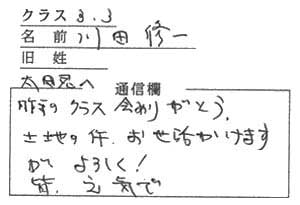 クラス 3.3
名前 川田修一
旧姓
太田君へ
通信欄
昨年のクラス会ありがとう。
土地の件、お世話かけます
が よろしく！
皆、元気で